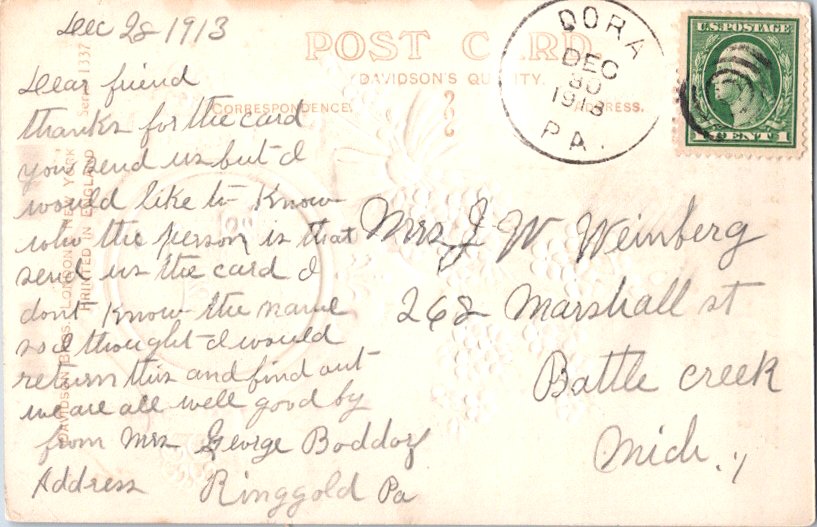 Dec 28 1913
POST CARD.
DAVIDSON'S QUALITY.
CORRESPONDENCE.
ADDRESS.
Dear friend
thanks for the card
you send us but I
would like to Know
who the person is that
send us the card I
dont Know the name
so I thought I would
return this and find out
we are all well good by
from Mrs George
Address Ringgold Pa
Mrs J W Weinberg
268 Marshall st
Battle creek
Mich.,
DORA
DEC
30
1913
PA.
U.S. POSTAGE
1 CENT 1
DAVIDSON BROS. LONDON & NEW YORK Series 1337
PRINTED IN ENGLAND